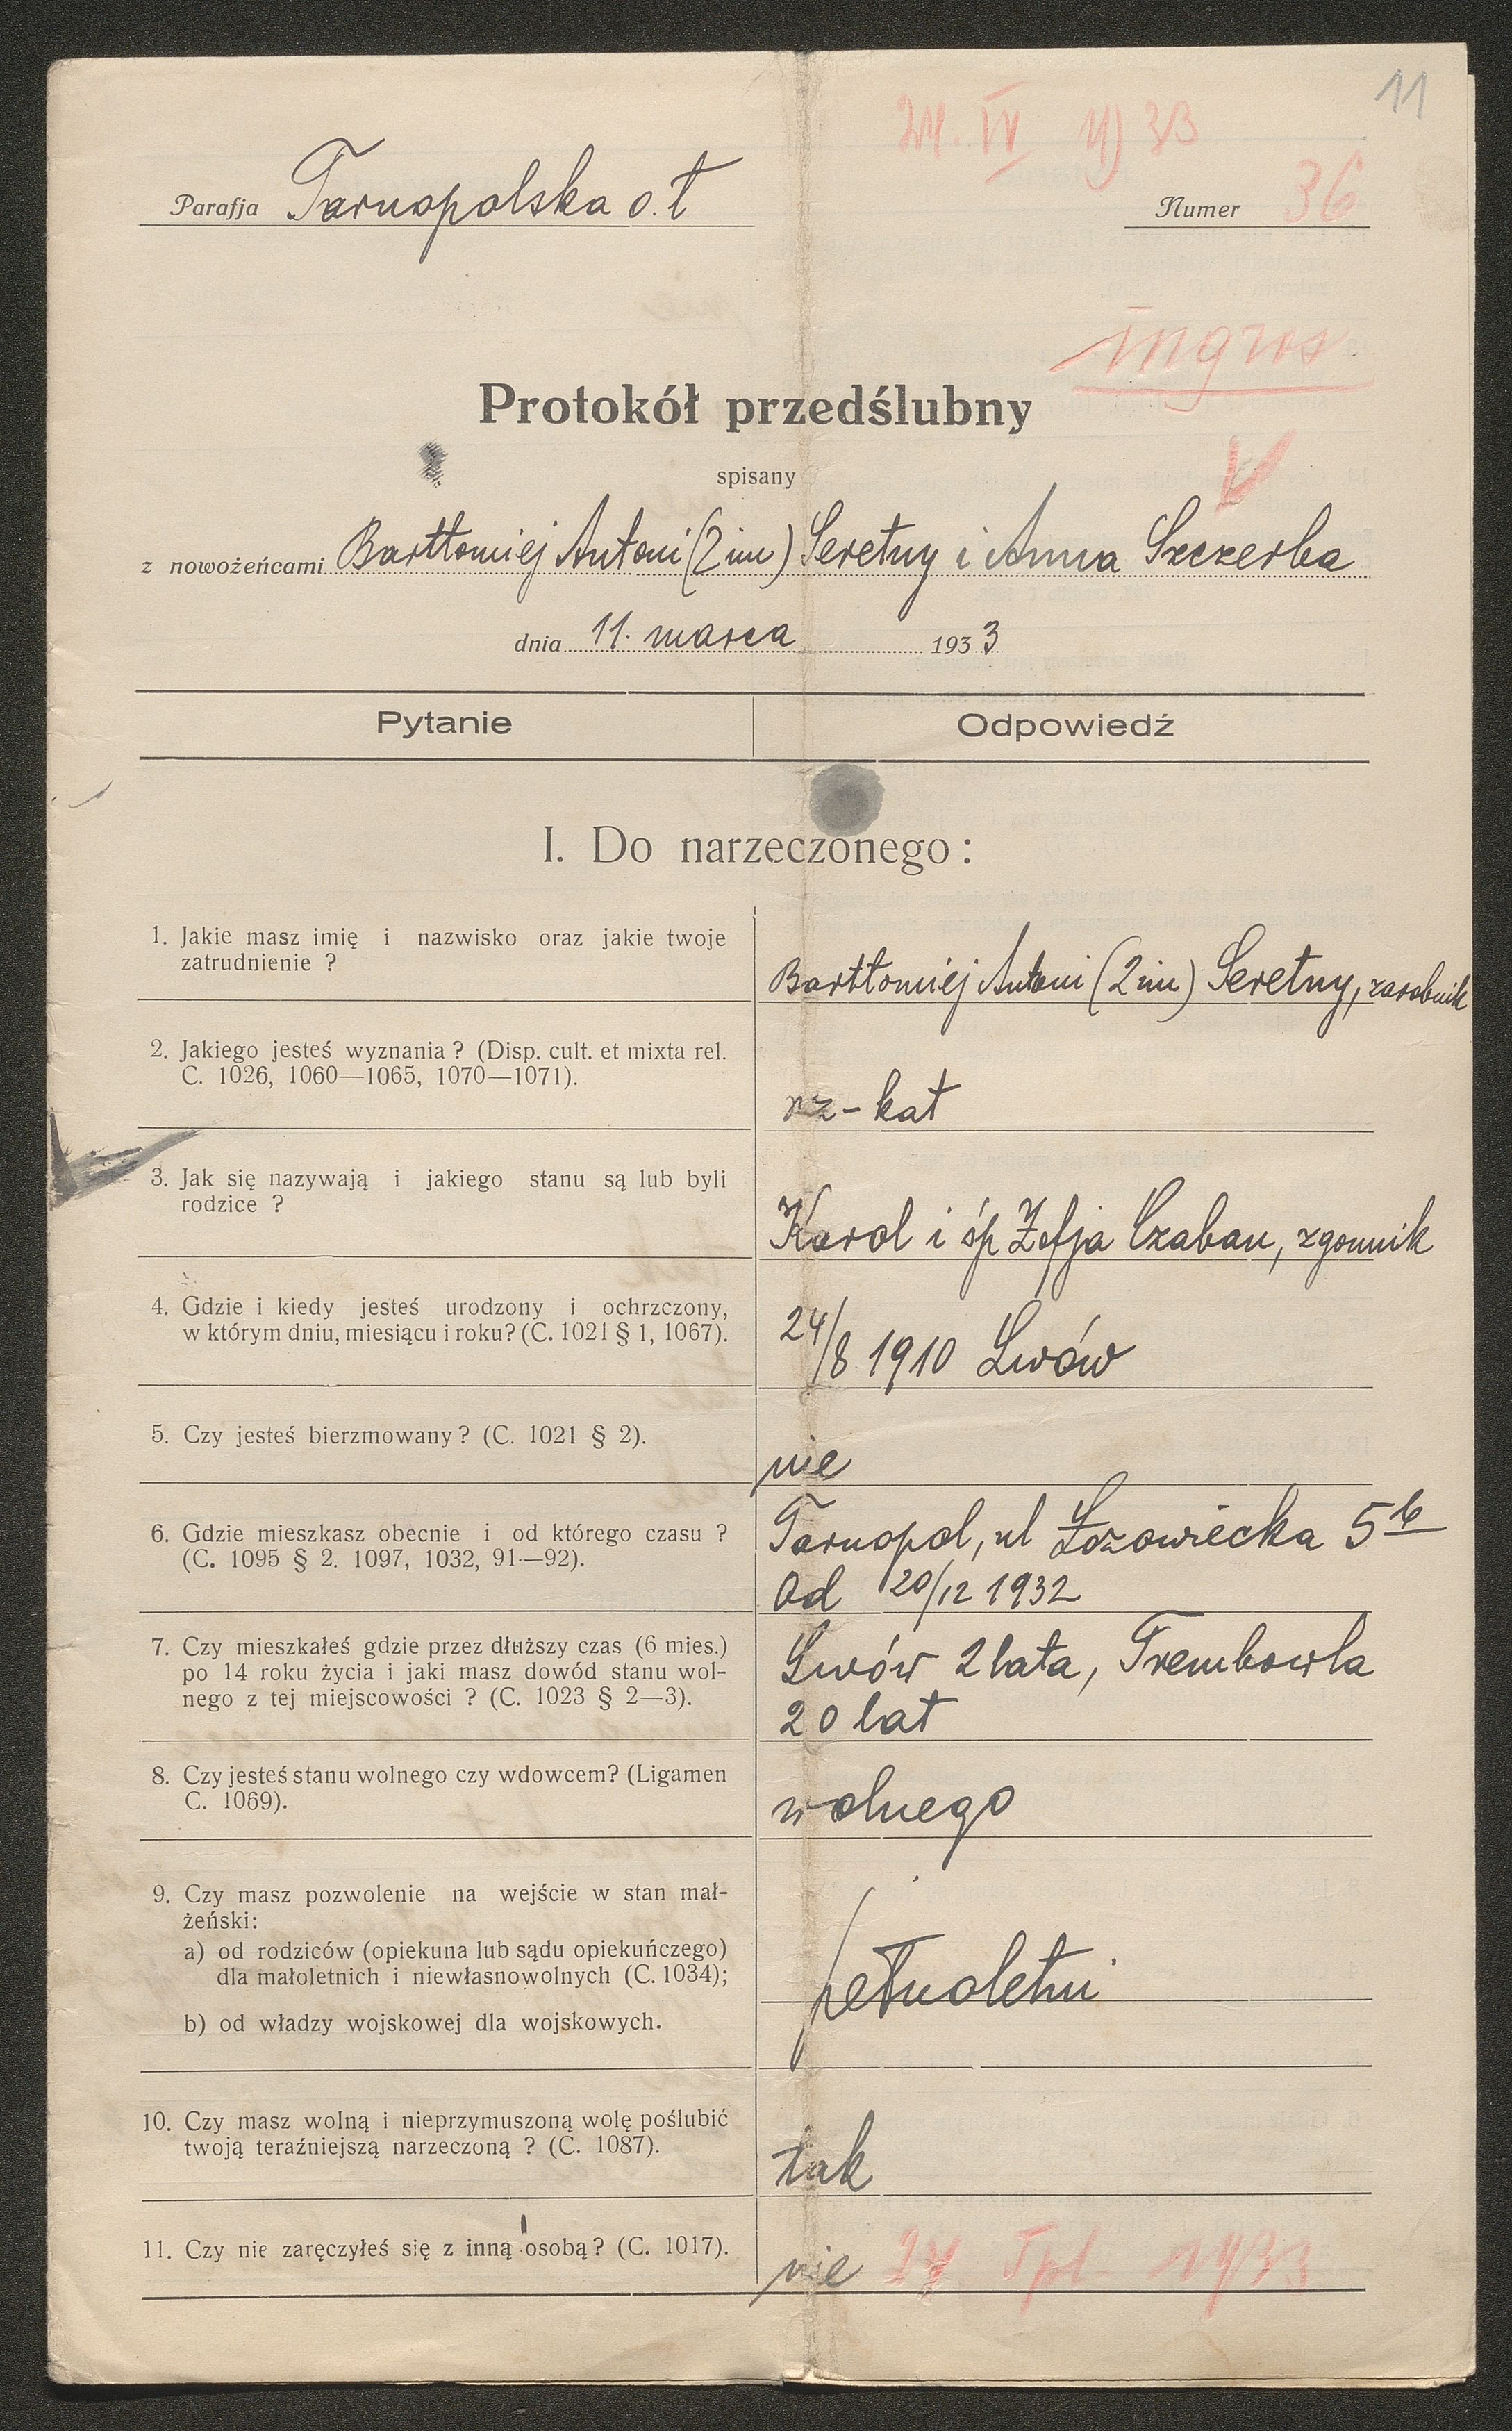 11
24. IV 1933
Parafja Tarnopolska o. ł
Numer 36
ingros
Protokół przedślubny
spisany
z nowożeńcami Bartłomiej Antoni (2 im) Seretny i Anna Szczerba
dnia 11. marca 1933
Pytanie Odpowiedź
I. Do narzeczonego:
1. Jakie masz imię i nazwisko oraz jakie twoje
zatrudnienie ?
Bartłomiej Antoni (2 im) Seretny, zarobnik
2. Jakiego jesteś wyznania ? (Disp. cult. et mixta rel.
C. 1026, 1060—1065, 1070—1071).
rz-kat
3. Jak się nazywają i jakiego stanu są lub byli
rodzice ?
Karol i śp Zofja Czaban, zgonnik
4. Gdzie i kiedy jesteś urodzony i ochrzczony,
w którym dniu, miesiącu i roku? (C. 1021 § 1, 1067).
24/8 1910 Lwów
5. Czy jesteś bierzmowany ? (C. 1021 § 2).
nie
6. Gdzie mieszkasz obecnie i od którego czasu ?
(C. 1095 § 2. 1097, 1032, 91—92).
Tarnopol, ul Łozowiecka 5b
od 20/12 1932
7. Czy mieszkałeś gdzie przez dłuższy czas (6 mies.)
po 14 roku życia i jaki masz dowód stanu wol-
nego z tej miejscowości ? (C. 1023 § 2—3).
Lwów 2 lata, Trembowla
20 lat
8. Czy jesteś stanu wolnego czy wdowcem? (Ligamen
C. 1069).
wolnego
9. Czy masz pozwolenie na wejście w stan mał-
żeński:
a) od rodziców (opiekuna lub sądu opiekuńczego)
dla małoletnich i niewłasnowolnych (C. 1034);
b) od władzy wojskowej dla wojskowych.
pełnoletni
10. Czy masz wolną i nieprzymuszoną wolę poślubić
twoją teraźniejszą narzeczoną ? (C. 1087).
tak
11. Czy nie zaręczyłeś się z inną osobą ? (C. 1017).
nie 1933